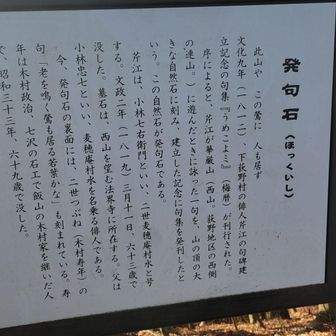 発句石(ほっくいし)
此山や この鶯に 人も居ず
文化九年(一八一二)、下荻野村の俳人芹江の句碑建
立記念の句集『うめごよミ』(梅暦)が刊行された。
序によると、芹江が華厳山(西山。荻野地区の西側
の連山。)に遊んだときに詠った一句を、山の頂の大
きな自然石に刻み、建立した記念に句集を発刊したと
いう。この自然石が発句石である。
芹江は、小林七右衛門といい、二世麦穂庵村水と号
する。文政二年(一八一九)三月十一日、六十三歳で
没した。墓石は、西山を望む法界寺に所在する。父は
小林忠七といい、麦穂庵村水を名乗る俳人である。
今、発句石の裏面には、二世つぶね(木村寿年)の
句「老を鳴く鶯も居る若葉かな」も刻まれている。寿
年は木村政治、七沢の石工で飯山の木村家を継いだ人
で、昭和三十三年、六十九歳で没した。